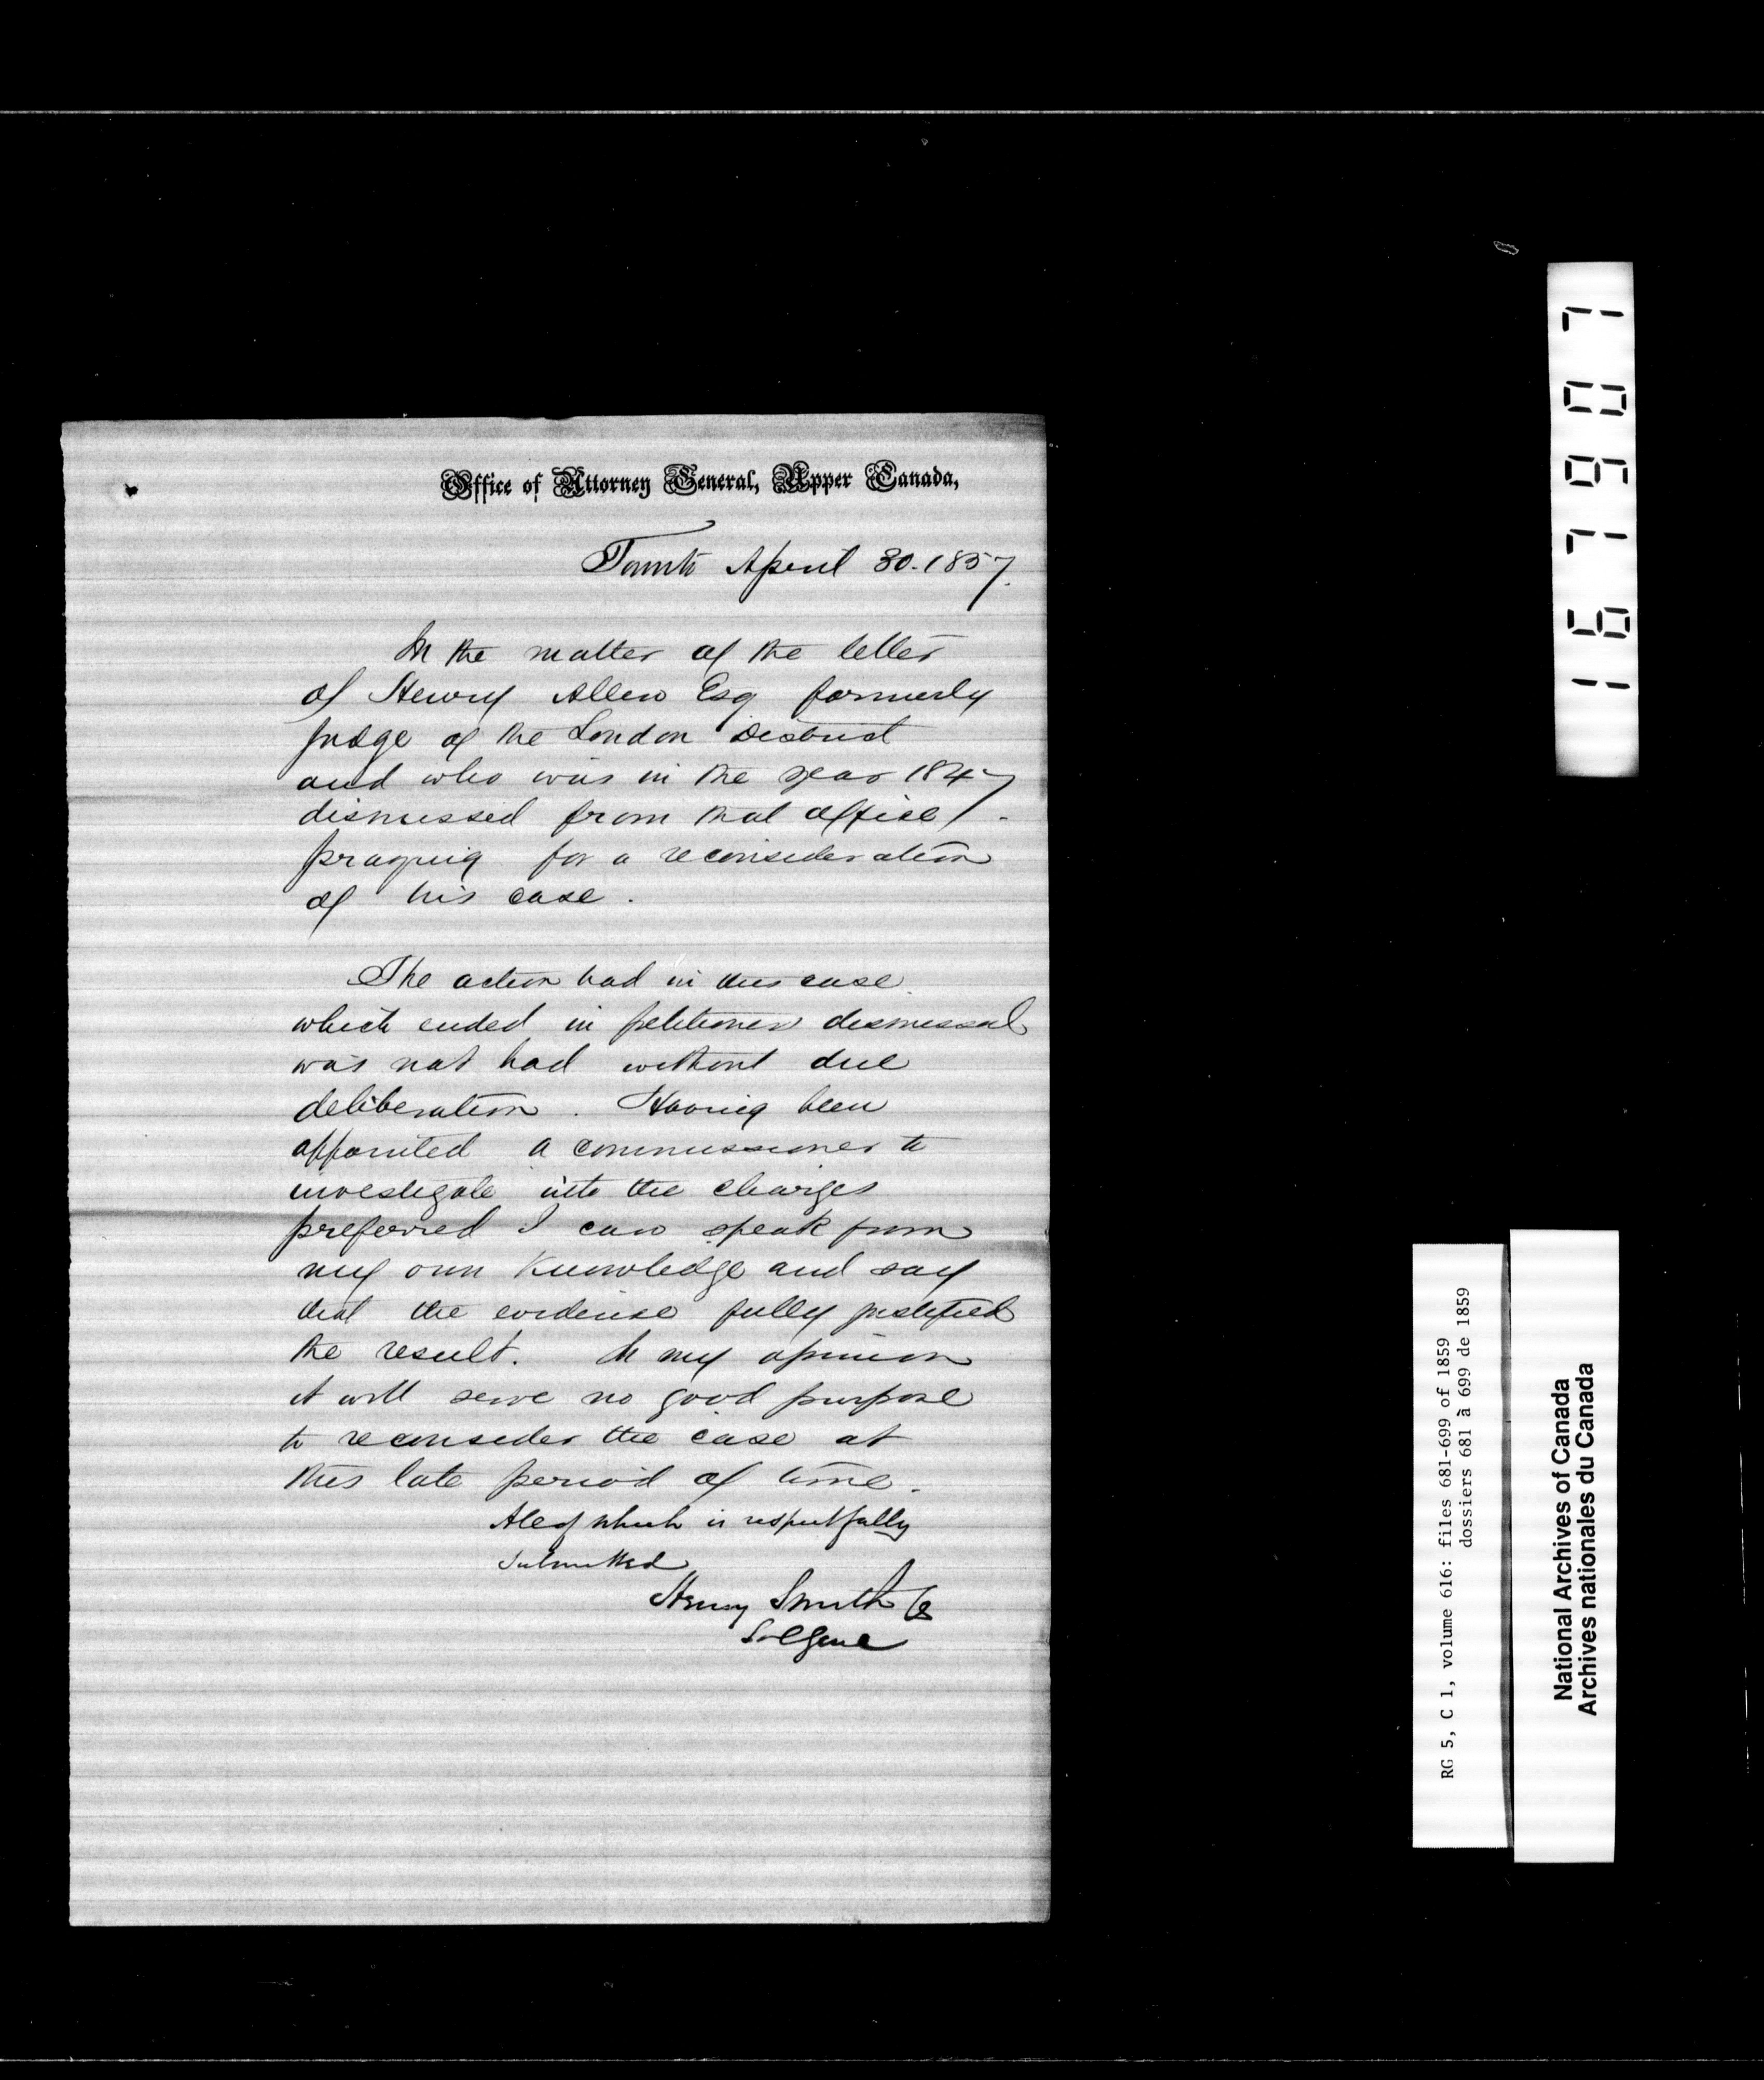 Office of Attorney General, Upper Canada,
Toronto April 30. 1857.
In the matter of the letter
of Henry Allen Esq formerly
Judge of the London District
and who was in the year 1847
dismissed from that office /.
praying for a reconsideration
of his case.
The action had in this case
which ended in petitioners dismissal
was not had without due
deliberation. Having been
appointed a commissioner to
investigate into the charges
preferred I can speak from
my own knowledge and say
that the evidence fully justified
the result. In my opinion
it will serve no good purpose
to reconsider the case at
this late period of time.
All of which is respectfully
submitted
Henry Smith
Sol Genl
167907
RG 5, C 1, volume 616: files 681-699 of 1859
dossiers 681 à 699 de 1859
National Archives of Canada
Archives nationales du Canada